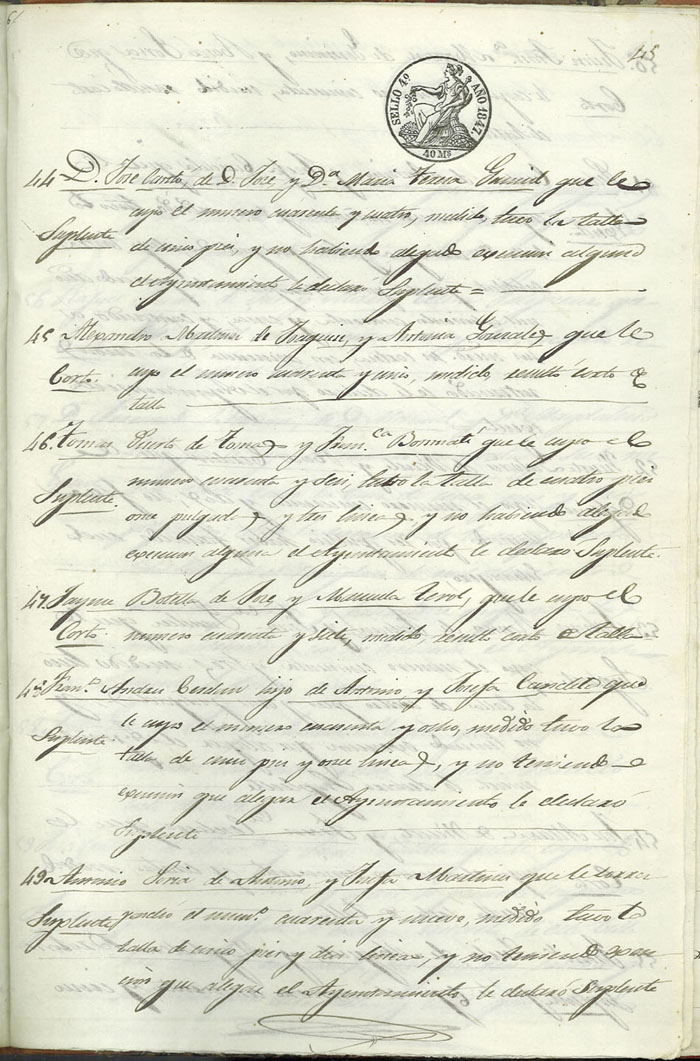 45
SELLO 4º AÑO 1847.
40 Ms
44 D. Jose de D. Jose, y Dª Maria Teresa que le
Suplente cupo el numero cuarenta y cuatro, medido, tuvo la talla
de cinco pies, y no habiendo alegado exencion alguna
el Ayuntamiento le declaro Suplente =
45 Alexandro Martinez de Joaquin, y Antonia Gonzalez que le
Corto. cupo el numero cuarenta y cinco, medido, resultó corto de
talla
46. Tomas Puerto de Tomas y Franca Bonmatí que le cupo el
Suplente. numero cuarenta y seis, tubo la talla de cuatro pies
once pulgadas y tres lineas y no habiendo alegado
exencion alguna el Ayuntamiento le declaro Suplente.
47. Jayme Botella de Jose y Manuela Terol, que le cupo el
Corto. numero cuarenta y siete, medido, resultó corto de talla
48 Franco Andreu hijo de Antonio y Josefa Candela que
Suplente le cupo el numero cuarenta y ocho, medido tuvo la
talla de cinco pies y once lineas, y no teniendo
exencion que alegar el Ayuntamiento le declaró
Suplente
49. Antonio Soria de Antonio, y Josefa Martinez que le corres
Suplente pondió el numo cuarenta y nueve, medido tuvo la
talla de cinco pies y dos lineas, y no teniendo exen
cion que alegar el Ayuntamiento le declaró Suplente